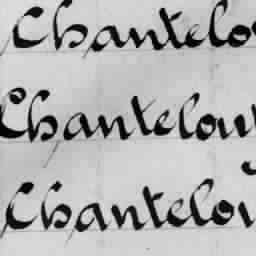 Chantelo
Chantelou
Chantelou